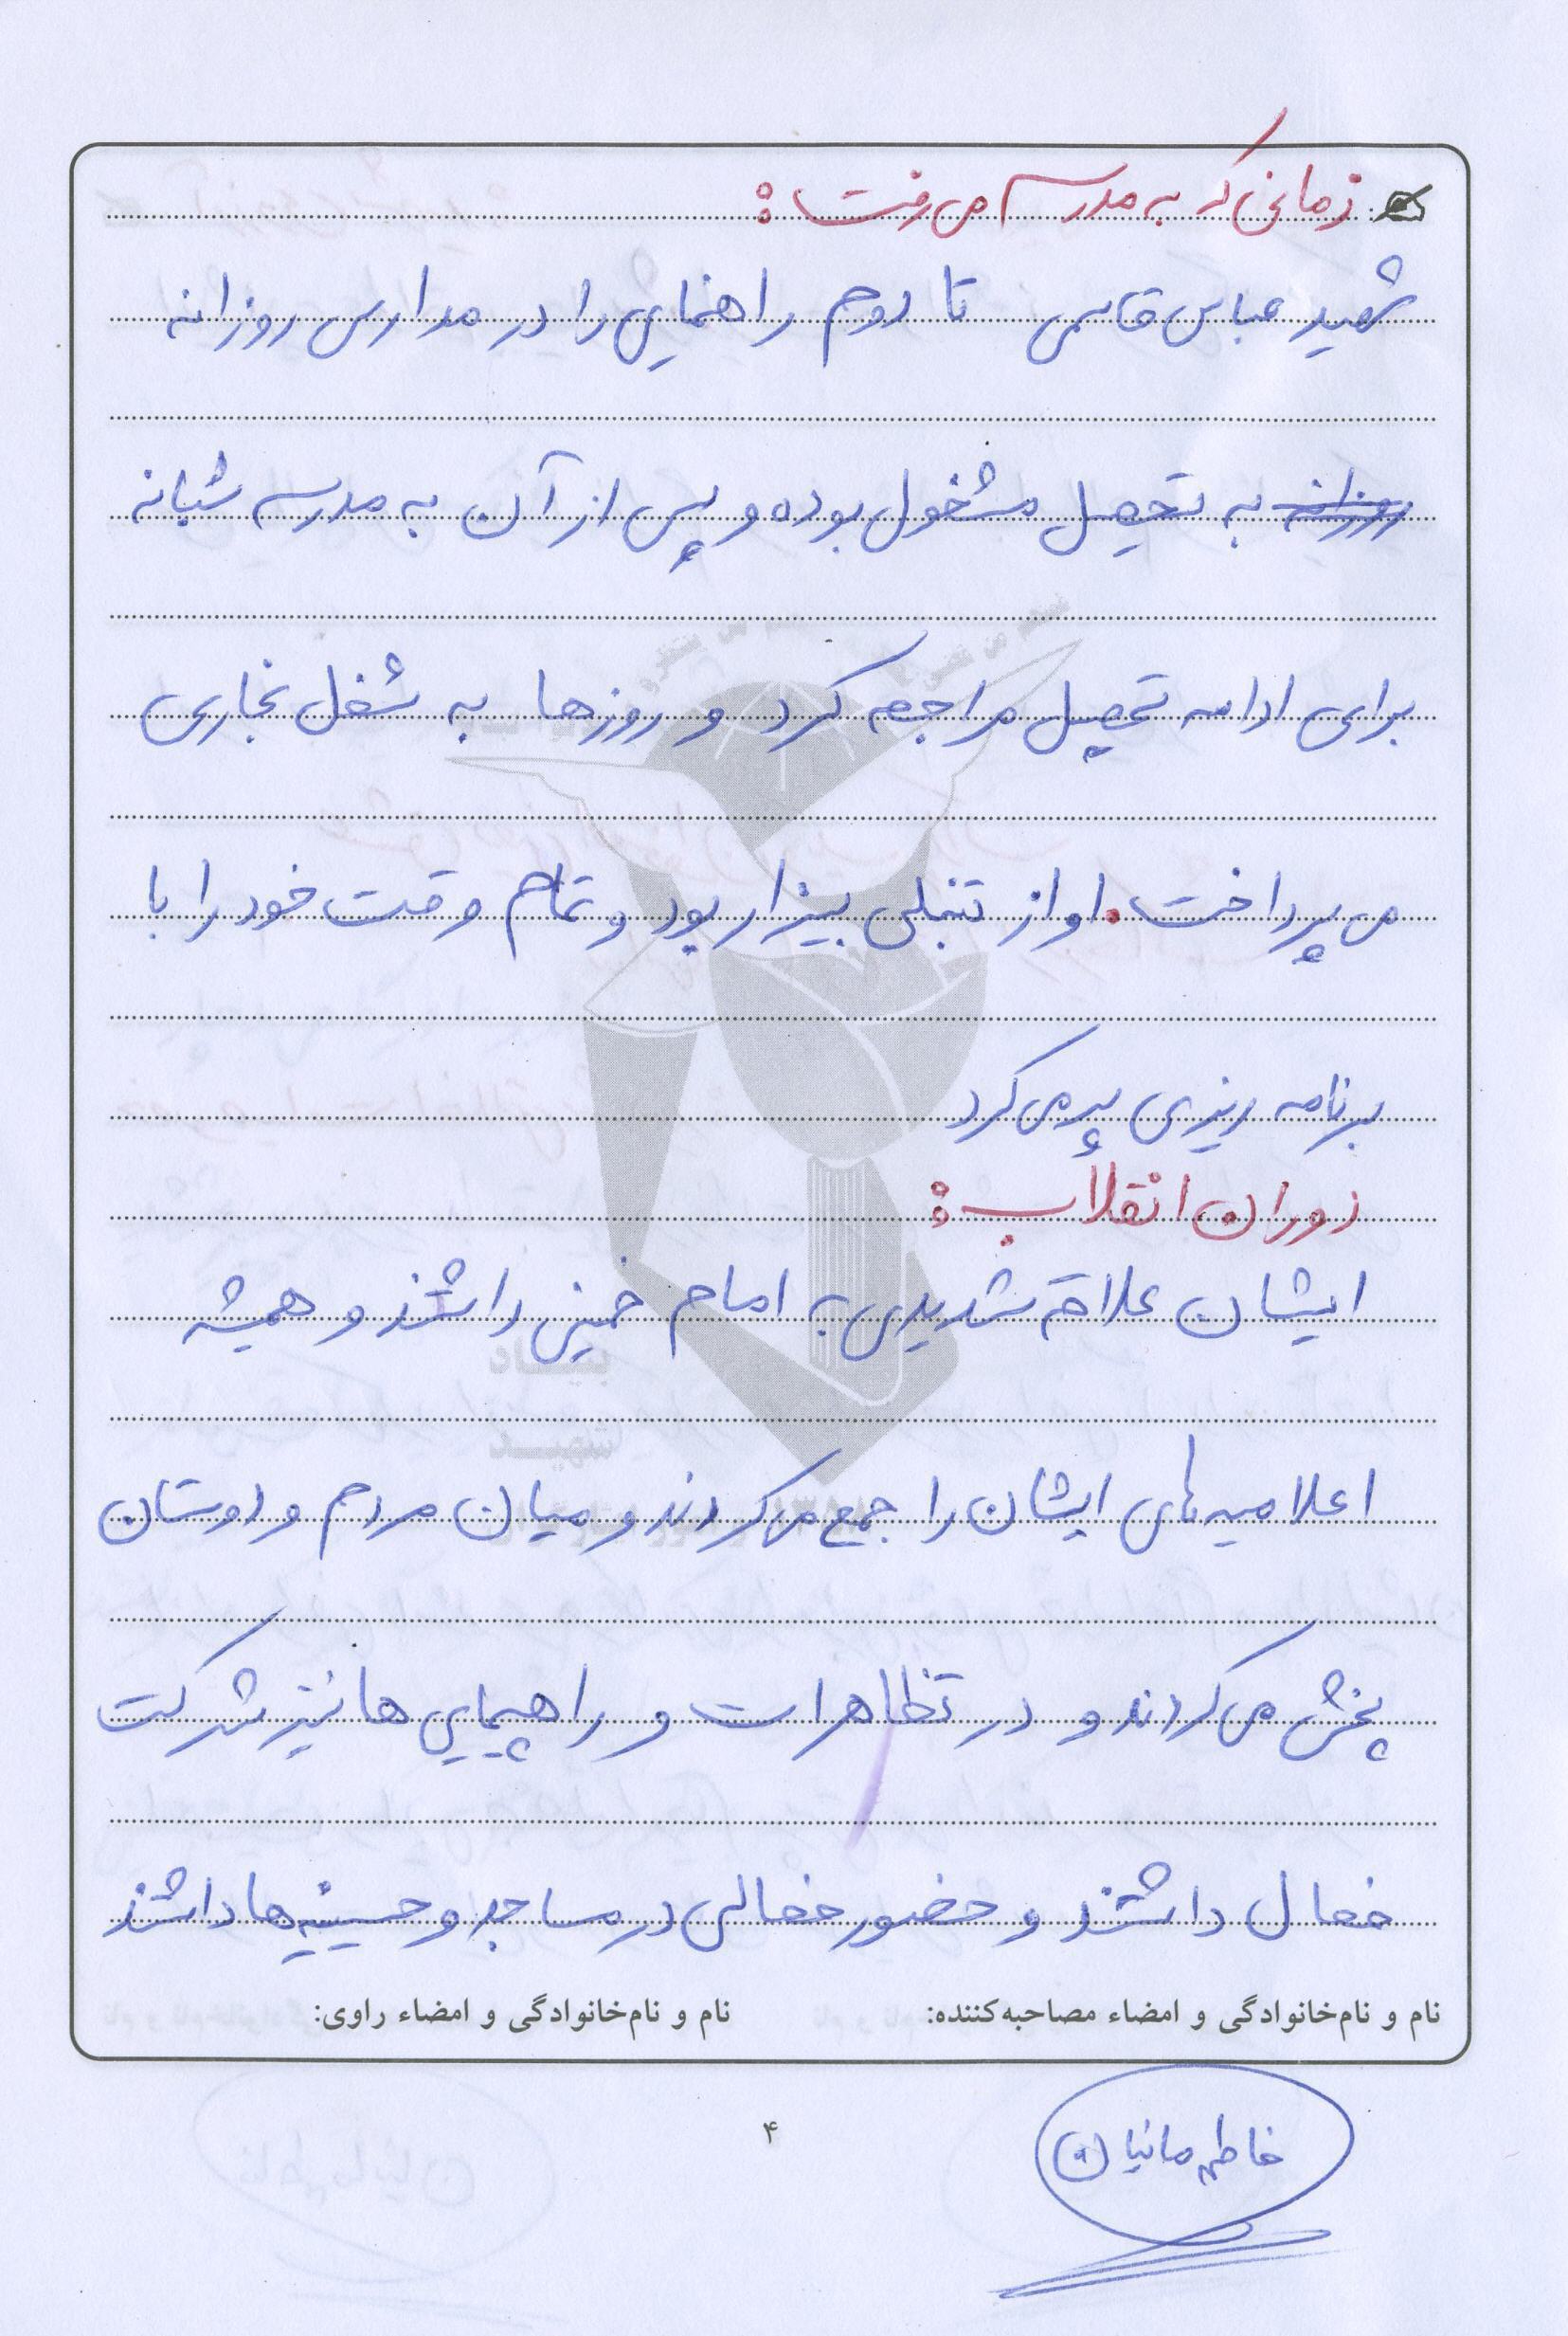 زمانی که به مدرسه می رفت:
شهید عباس قاسمی تا دوم راهنمایی را در مدارس روزانه
روزانه به تحصیل مشغول بوده و پس از آن به مدرسه شبانه
برای ادامه تحصیل مراجعه کرد و روزها به شغل نجاری
می پرداخت. او از تنبلی بیزار بود و تمام وقت خود را با
برنامه ریزی پر می کرد
دوران انقلاب:
ایشان علاقه شدیدی به امام خمینی داشتند و همیشه
اعلامیه های ایشان را جمع می کردند و میان مردم و دوستان
پخش می کردند و در تظاهرات و راهپیمایی ها نیز شرکت
فعال داشتند و حضور فعالی در مساجد و حسینیه ها داشتند
نام و نام‌خانوادگی و امضاء مصاحبه‌کننده: نام و نام‌خانوادگی و امضاء راوی:
فاطمه مانیان
۴
بنیاد
شهید